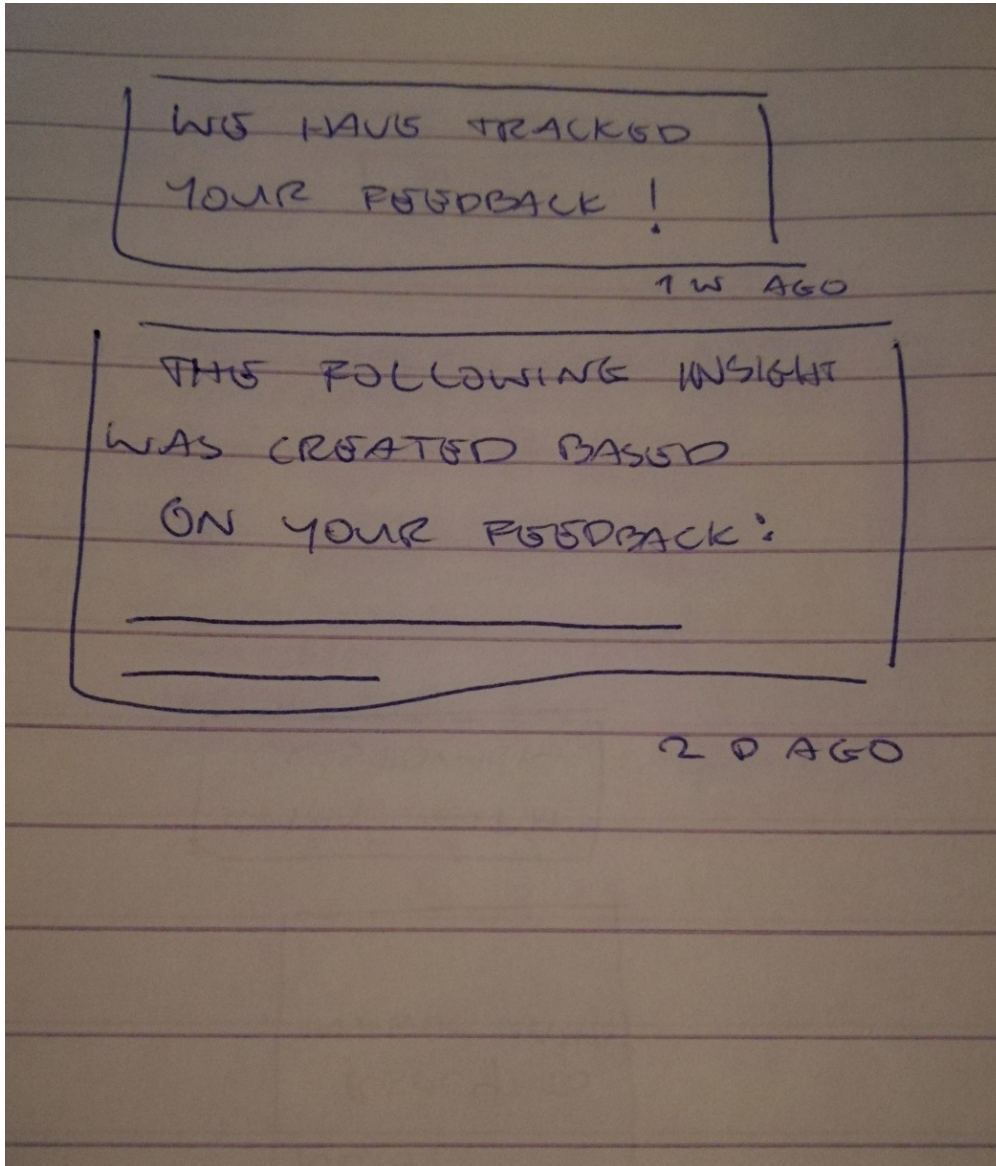 WE HAVE TRACKED
YOUR FEEDBACK !
1 W AGO
THE FOLLOWING INSIGHT
WAS CREATED BASED
ON YOUR FEEDBACK:
2 D AGO